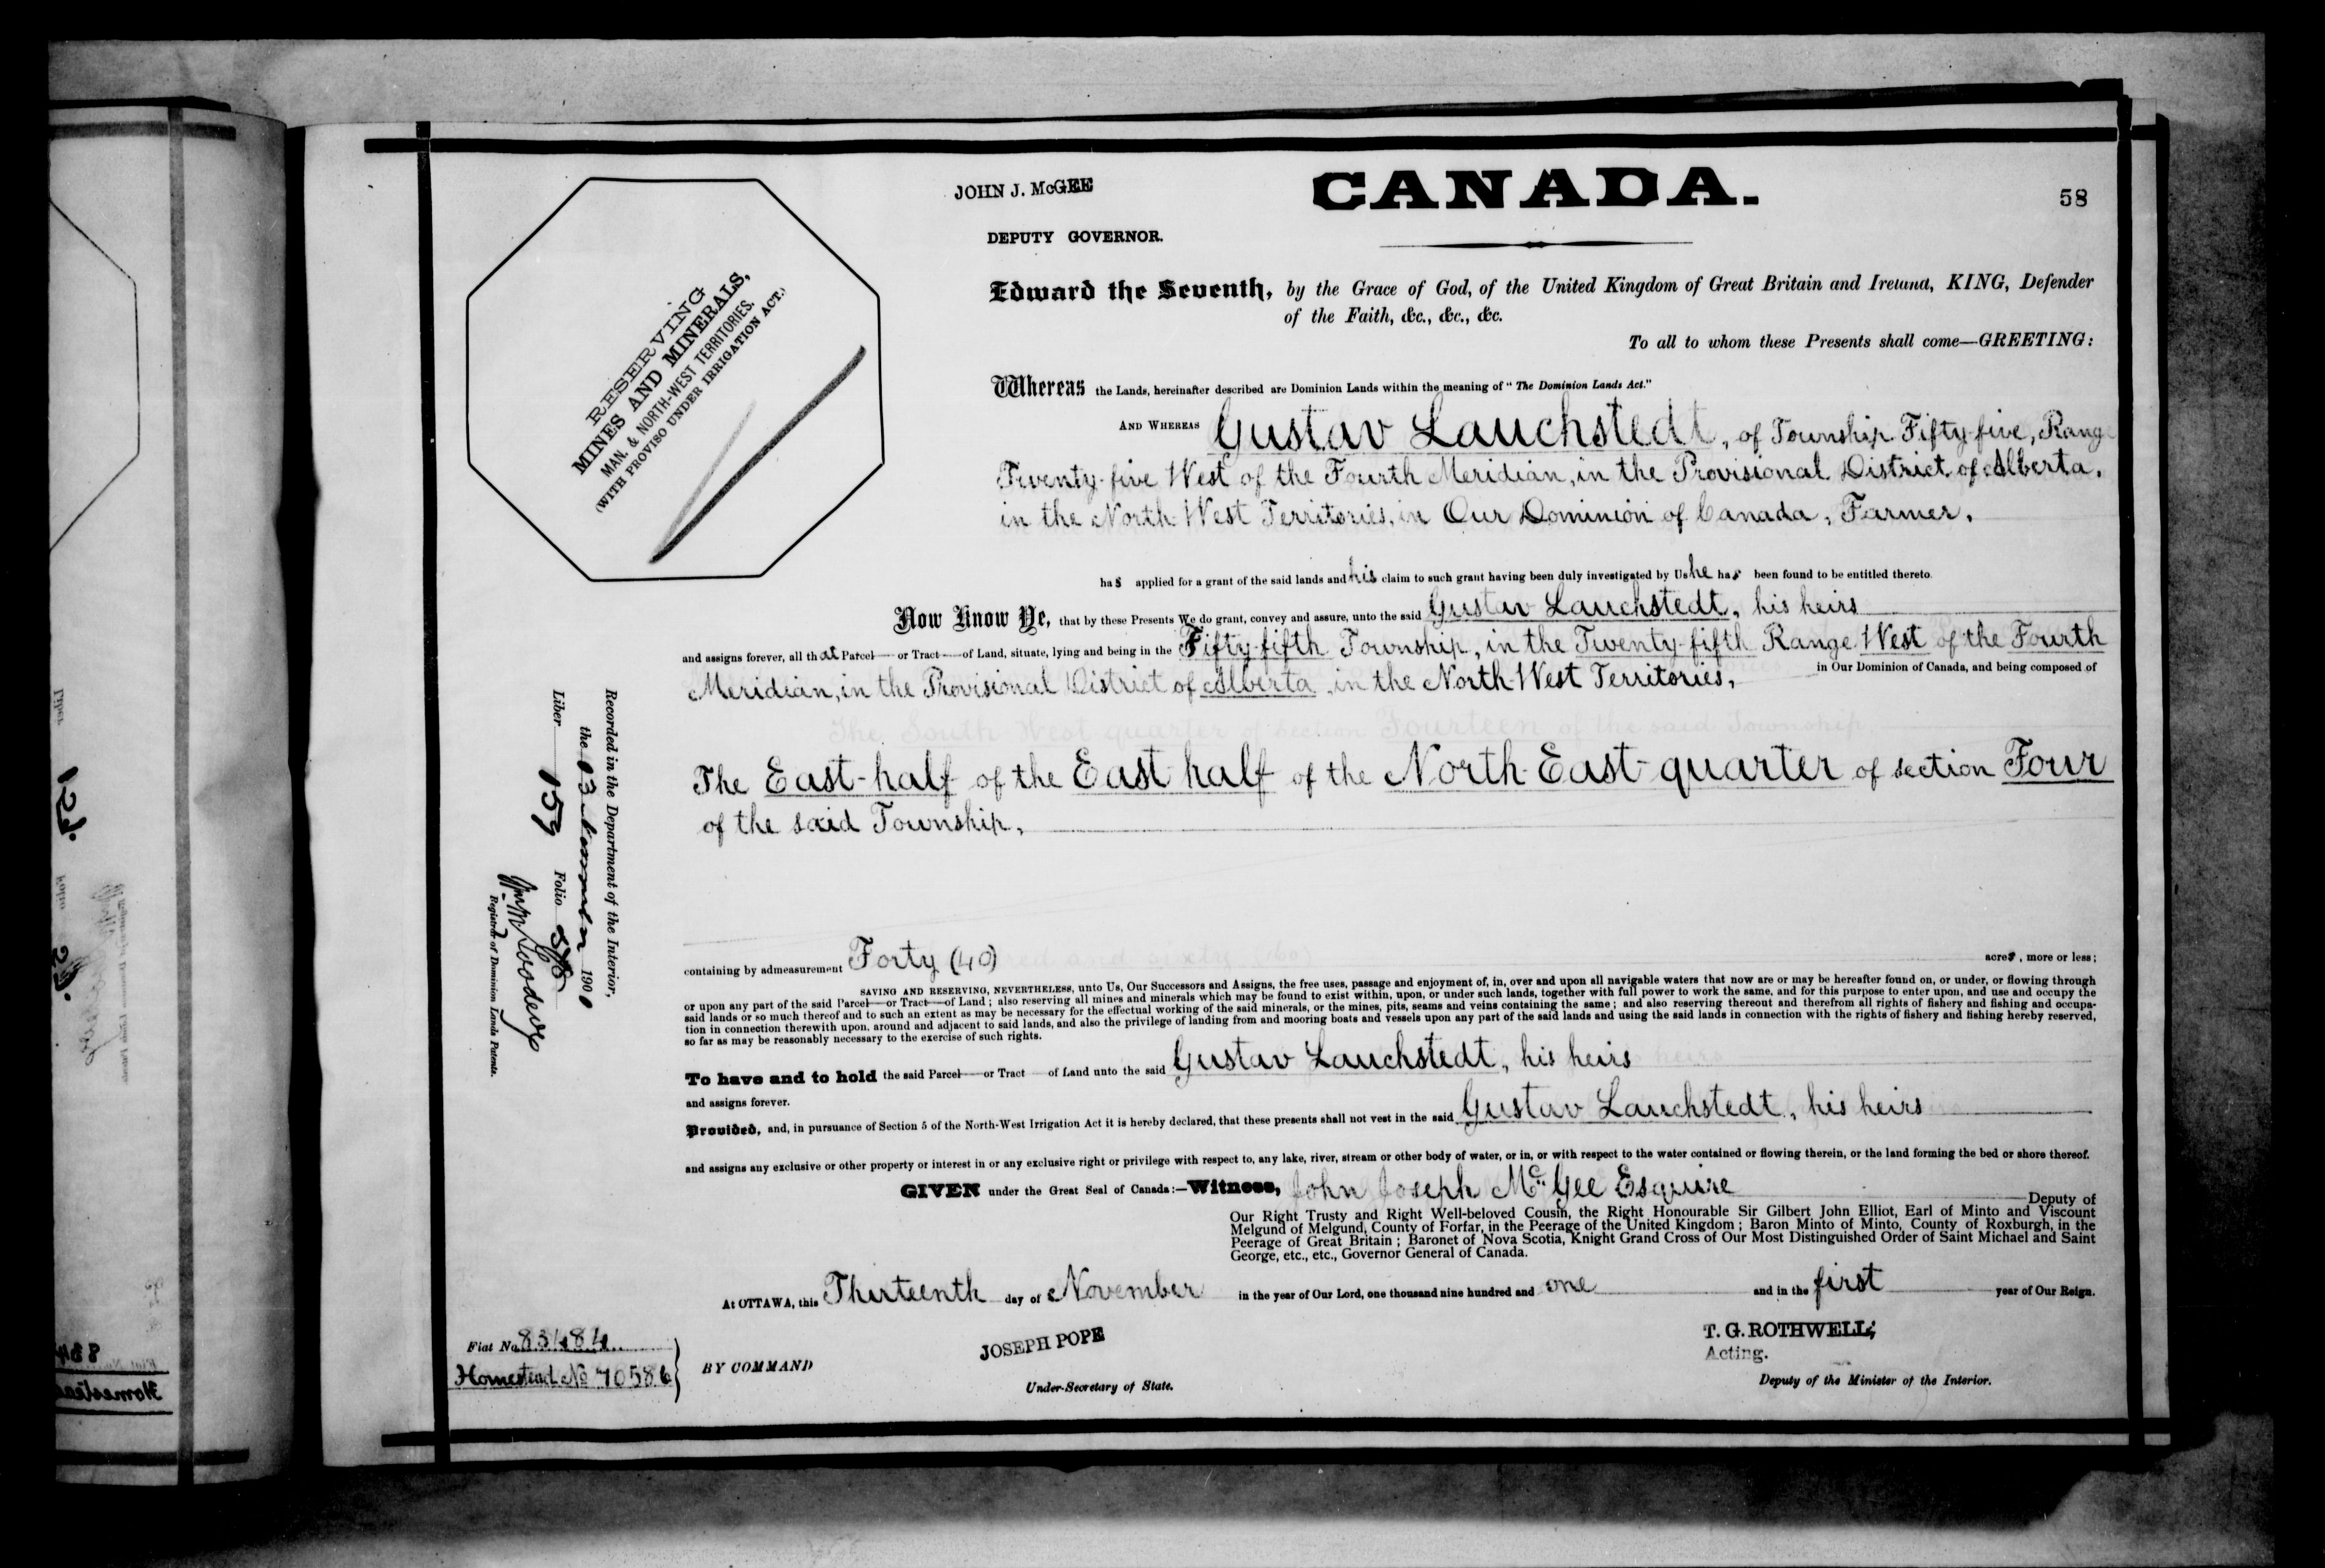 JOHN J. McGEE
DEPUTY GOVERNOR.
CANADA.
58
RESERVING
MINES AND MINERALS,
MAN. & NORTH-WEST TERRITORIES.
(WITH PROVISO UNDER IRRIGATION ACT.)
Edward the Seventh, by the Grace of God, of the United Kingdom of Great Britain and Ireland, KING, Defender
of the Faith, &c., &c., &c.
To all to whom these Presents shall come—GREETING:
Whereas the Lands, hereinafter described are Dominion Lands within the meaning of "The Dominion Lands Act."
AND WHEREAS Gustav Lauchstedt, of Township Fifty-five, Range
Twenty-five West of the Fourth Meridian, in the Provisional District of Alberta,
in the North West Territories, in Our Dominion of Canada, Farmer,
has applied for a grant of the said lands and his claim to such grant having been duly investigated by Us he has been found to be entitled thereto.
Now Know Ye, that by these Presents We do grant, convey and assure, unto the said Gustav Lauchstedt, his heirs
and assigns forever, all that Parcel or Tract of Land, situate, lying and being in the Fifty-fifth Township, in the Twenty-fifth Range West of the Fourth
Meridian, in the Provisional District of Alberta, in the North-West Territories, in Our Dominion of Canada, and being composed of
The South West quarter of section Fourteen of the said Township
The East-half of the East half of the North-East-quarter of section Four
of the said Township,
containing by admeasurement Forty (40) acres, more or less;
SAVING AND RESERVING, NEVERTHELESS, unto Us, Our Successors and Assigns, the free uses, passage and enjoyment of, in, over and upon all navigable waters that now are or may be hereafter found on, or under, or flowing through
or upon any part of the said Parcel or Tract of Land; also reserving all mines and minerals which may be found to exist within, upon, or under such lands, together with full power to work the same, and for this purpose to enter upon, and use and occupy the
said lands or so much thereof and to such an extent as may be necessary for the effectual working of the said minerals, or the mines, pits, seams and veins containing the same; and also reserving thereout and therefrom all rights of fishery and fishing and occupa-
tion in connection therewith upon, around and adjacent to said lands, and also the privilege of landing from and mooring boats and vessels upon any part of the said lands and using the said lands in connection with the rights of fishery and fishing hereby reserved,
so far as may be reasonably necessary to the exercise of such rights.
To have and to hold the said Parcel or Tract of Land unto the said Gustav Lauchstedt, his heirs
and assigns forever.
Provided, and, in pursuance of Section 5 of the North-West Irrigation Act it is hereby declared, that these presents shall not vest in the said Gustav Lauchstedt, his heirs
and assigns any exclusive or other property or interest in or any exclusive right or privilege with respect to, any lake, river, stream or other body of water, or in, or with respect to the water contained or flowing therein, or the land forming the bed or shore thereof.
GIVEN under the Great Seal of Canada:—Witness, John Joseph McGee Esquire Deputy of
Our Right Trusty and Right Well-beloved Cousin, the Right Honourable Sir Gilbert John Elliot, Earl of Minto and Viscount
Melgund of Melgund, County of Forfar, in the Peerage of the United Kingdom; Baron Minto of Minto, County of Roxburgh, in the
Peerage of Great Britain; Baronet of Nova Scotia, Knight Grand Cross of Our Most Distinguished Order of Saint Michael and Saint
George, etc., etc., Governor General of Canada.
At OTTAWA, this Thirteenth day of November in the year of Our Lord, one thousand nine hundred and one and in the first year of Our Reign.
Fiat No. 83484
Homestead No 70586
BY COMMAND
JOSEPH POPE
Under-Secretary of State.
T. G. ROTHWELL,
Acting.
Deputy of the Minister of the Interior.
Recorded in the Department of the Interior,
the 13 November 1901
Liber 159 Folio 58
Registrar of Dominion Lands Patents.